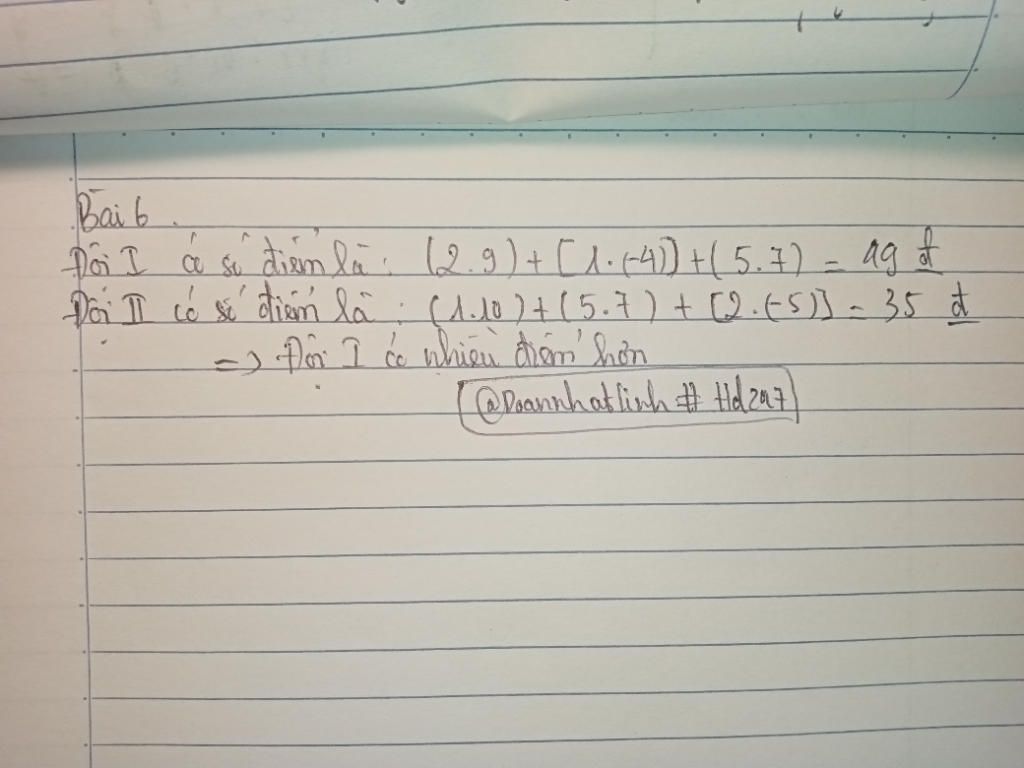 Bài 6.
Đội I có số điểm là: (2.9) + [1.(-4)] + (5.7) = 49 đ
Đội II có số điểm là: (1.10) + (5.7) + [2.(-5)] = 35 đ
=> Đội I có nhiều điểm hơn
@Doannhatlinh # Hd247